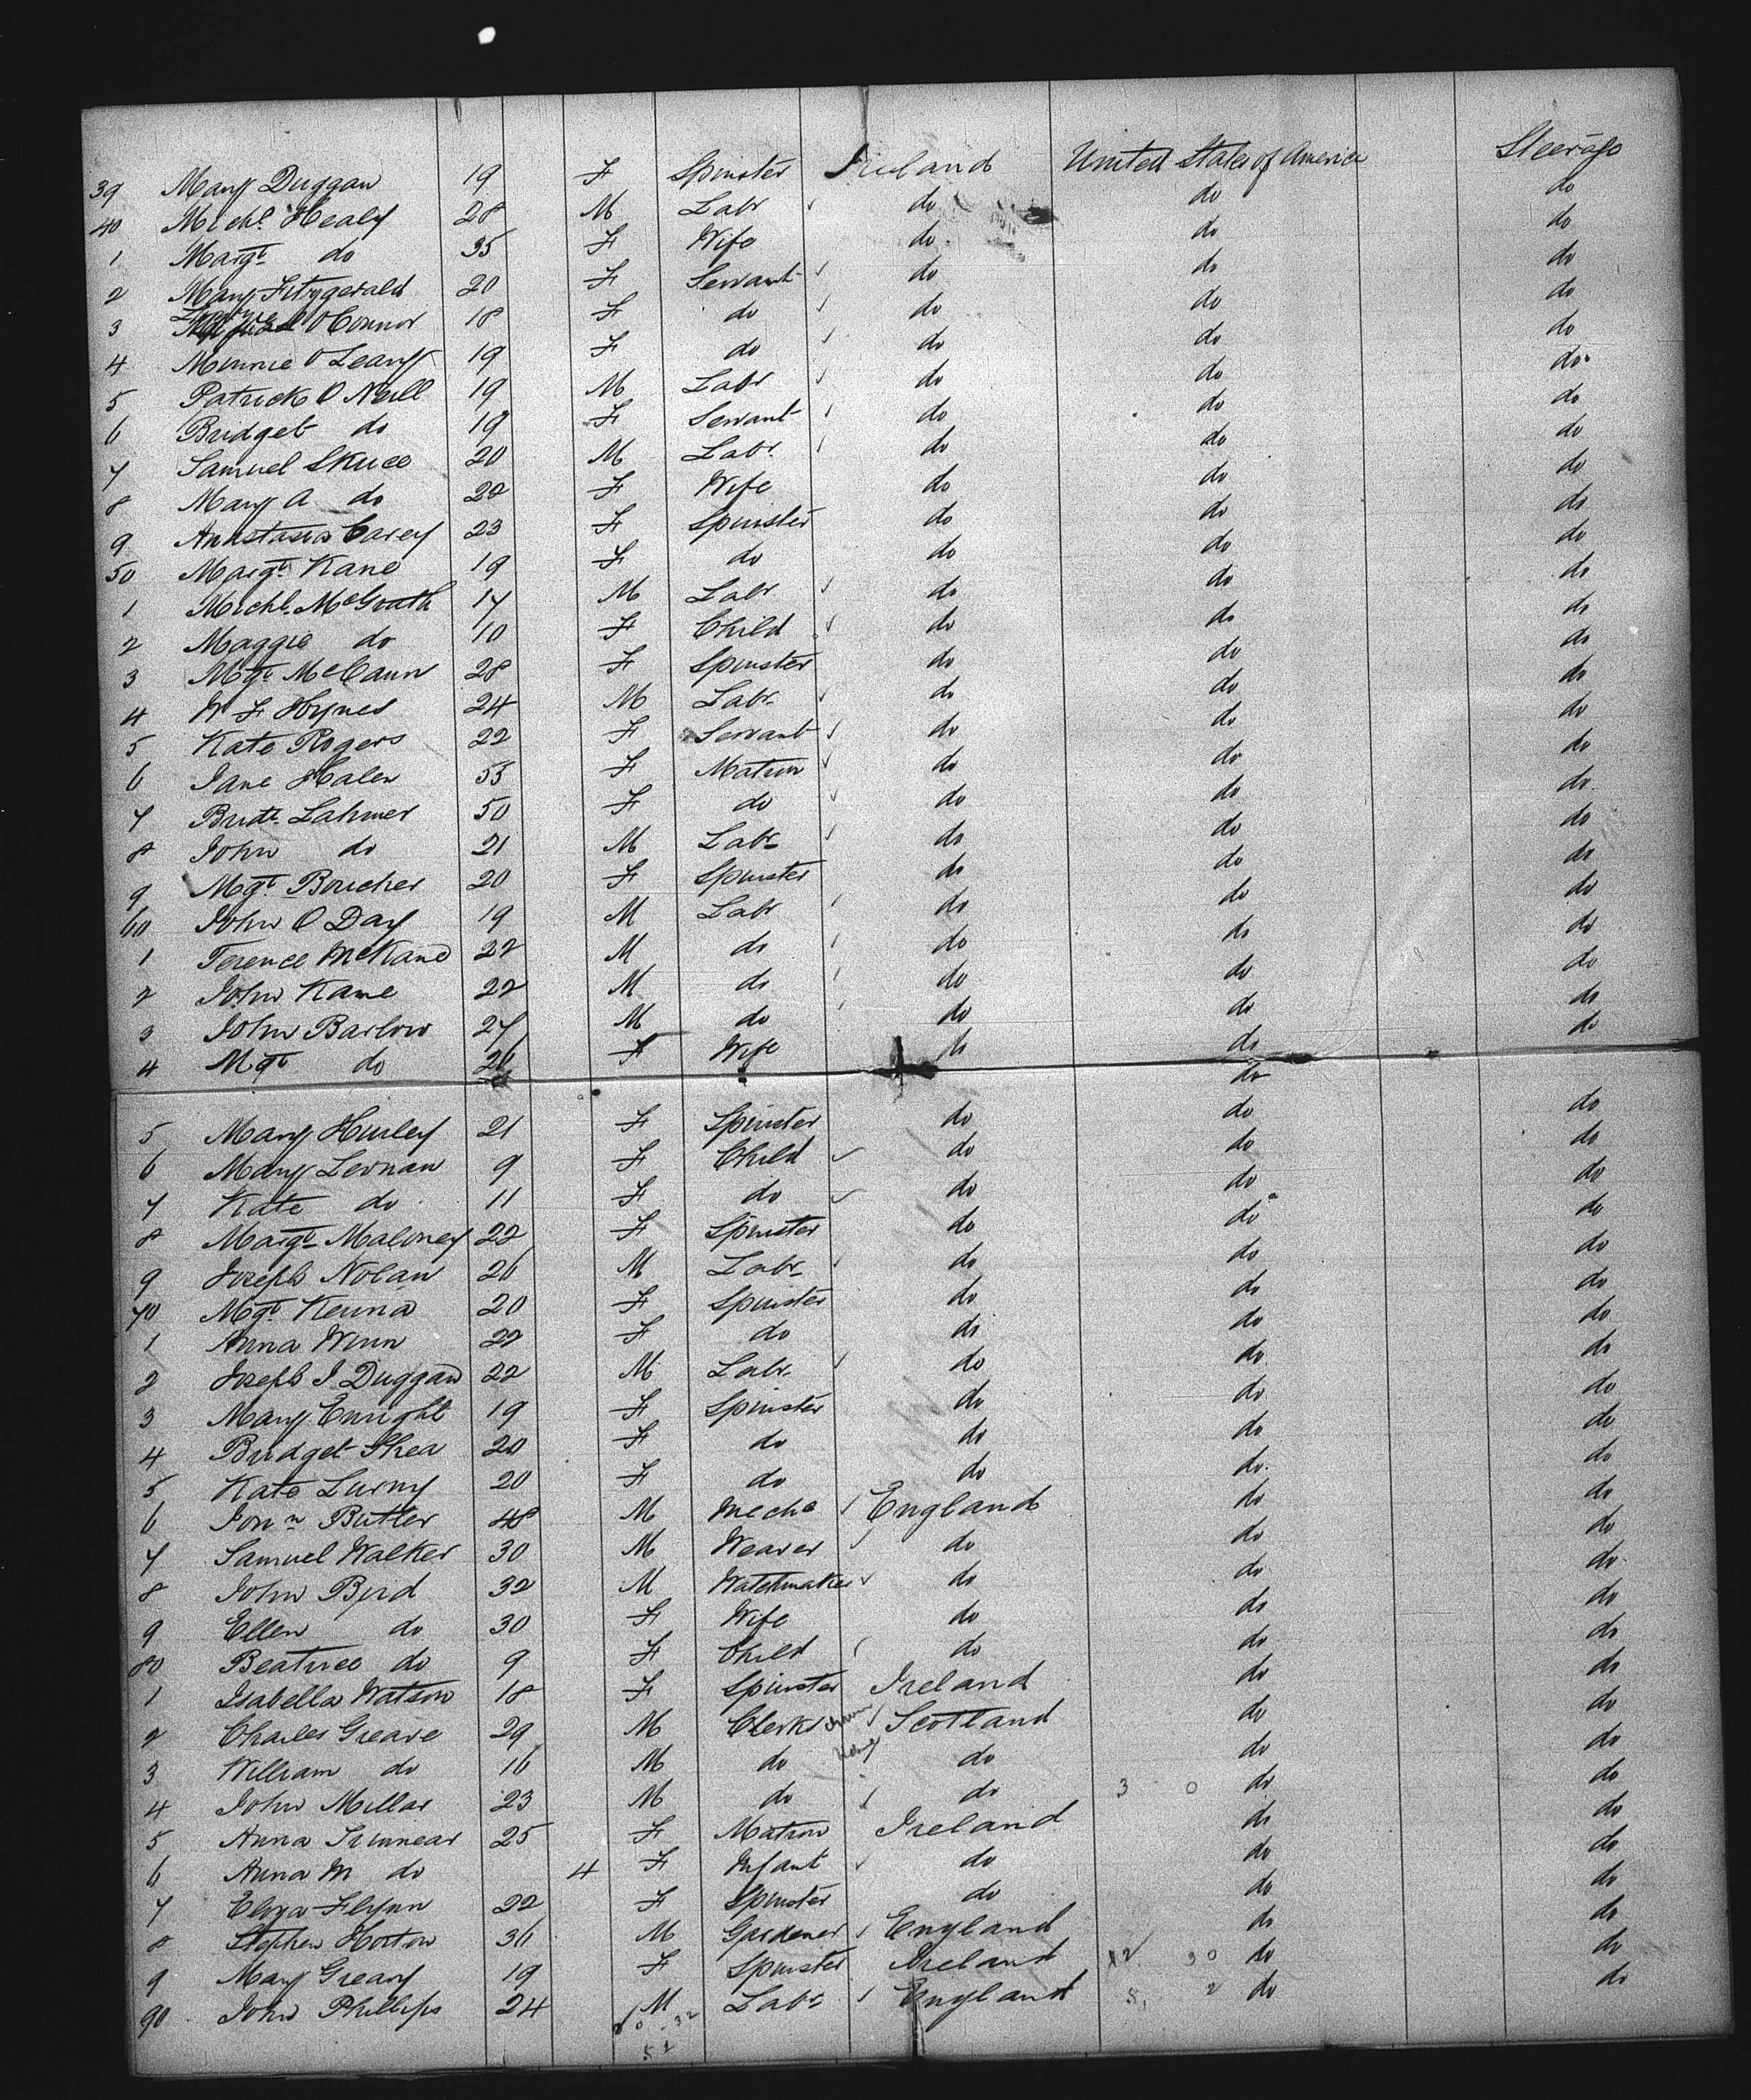 39 Mary Duggan 19 F Spinster Ireland United States of America Steerage
40 Michl. Healy 28 M Labr do do do
1 Margt do 35 F Wife do do do
2 Mary Fitzgerald 20 F Servant do do do
3 O'Connor 18 F do do do do
4 Minnie O'Leary 19 F do do do do
5 Patrick O'Neill 19 M Labr do do do
6 Bridget do 19 F Servant do do do
7 Samuel Skuce 20 M Labr do do do
8 Mary A do 22 F Wife do do do
9 Anastasia Carey 23 F Spinster do do do
50 Margt. Kane 19 F do do do do
1 Michl. McGrath 17 M Labr do do do
2 Maggie do 10 F Child do do do
3 Mgt. McCann 28 F Spinster do do do
4 W F Hynes 24 M Labr do do do
5 Kate Rogers 22 F Servant do do do
6 Jane Halen 55 F Matron do do do
7 Bridt. Lahmer 50 F do do do do
8 John do 21 M Labr do do do
9 Mgt. Boucher 20 F Spinster do do do
60 John O'Day 19 M Labr do do do
1 Terence McKane 22 M do do do do
2 John Kane 22 M do do do do
3 John Barlow 27 M do do do do
4 Mgt do 26 F Wife do do do
do
5 Mary Hurley 21 F Spinster do do do
6 Mary Lernan 9 F Child do do do
7 Kate do 11 F do do do do
8 Margt. Maloney 22 F Spinster do do do
9 Joseph Nolan 26 M Labr do do do
70 Mgt. Kenna 20 F Spinster do do do
1 Anna Winn 22 F do do do do
2 Joseph J Duggan 22 M Labr. do do do
3 Mary Enright 19 F Spinster do do do
4 Bridget Shea 20 F do do do do
5 Kate Lurny 20 F do do do do
6 Jonn Butler 48 M Mecha England do do
7 Samuel Walker 30 M Weaver do do do
8 John Bird 32 M Watchmaker do do do
9 Ellen do 30 F Wife do do do
80 Beatrice do 9 F Child do do do
1 Isabella Watson 18 F Spinster Ireland do do
2 Charles Greave 29 M Clerk Scotland do do
3 William do 16 M do do do do
4 John Millar 23 M do do 3 0 do do
5 Anna Srunnear 25 F Matron Ireland do do
6 Anna M do 4 F Infant do do do
7 Eliza Flynn 22 F Spinster do do do
8 Stephen Horton 36 M Gardener England do do
9 Mary Greany 19 F Spinster Ireland do do
90 John Phillips 24 M Labr England do do